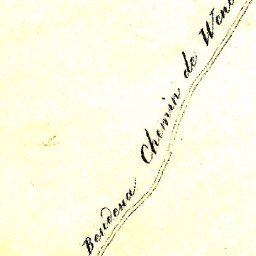 Bendena Chemin de Wene